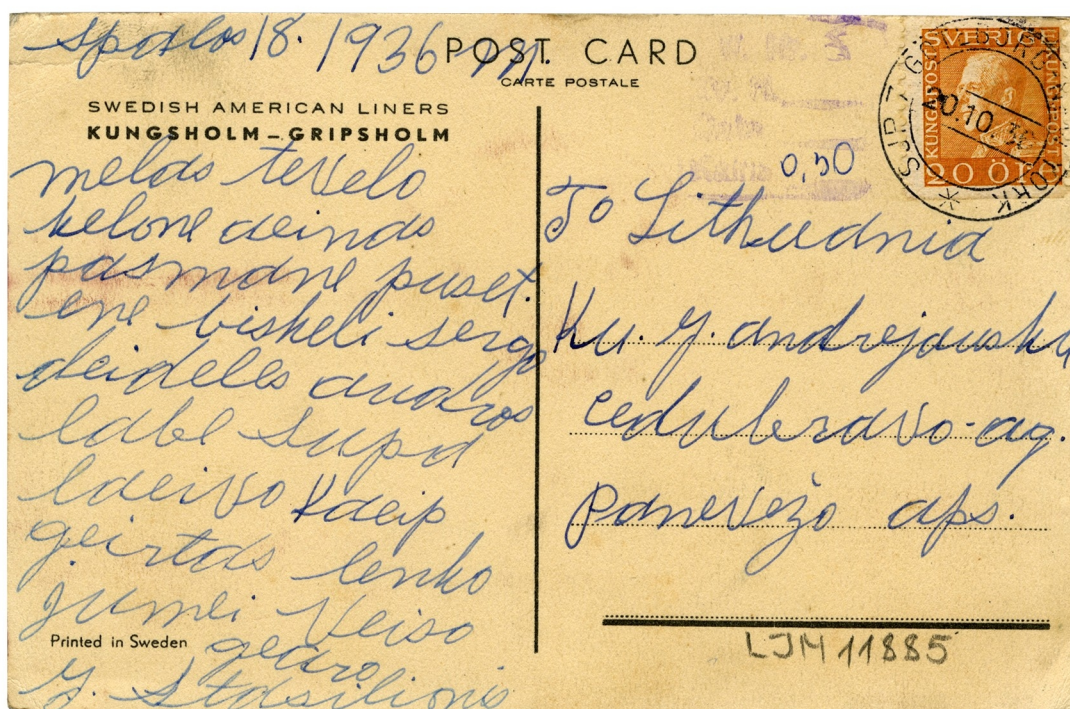 spalos 18. 1936 m.
POST CARD
CARTE POSTALE
SWEDISH AMERICAN LINERS
KUNGSHOLM–GRIPSHOLM
melas tevelo
kelone deinas
pasmane puset.
ene biskeli sergo
deideles audros
labe supa
laeivo kaeip
geirtas lenko
jumei Veiso
gearo
J. Stasilionis
Printed in Sweden
SVERIGE
KUNGL. POST
20 ÖRE
20.10.36
0,40
To Lithuania
Ku. J. andrejausku
cedubravo-ag.
Panevėžo aps.
LJM 11885